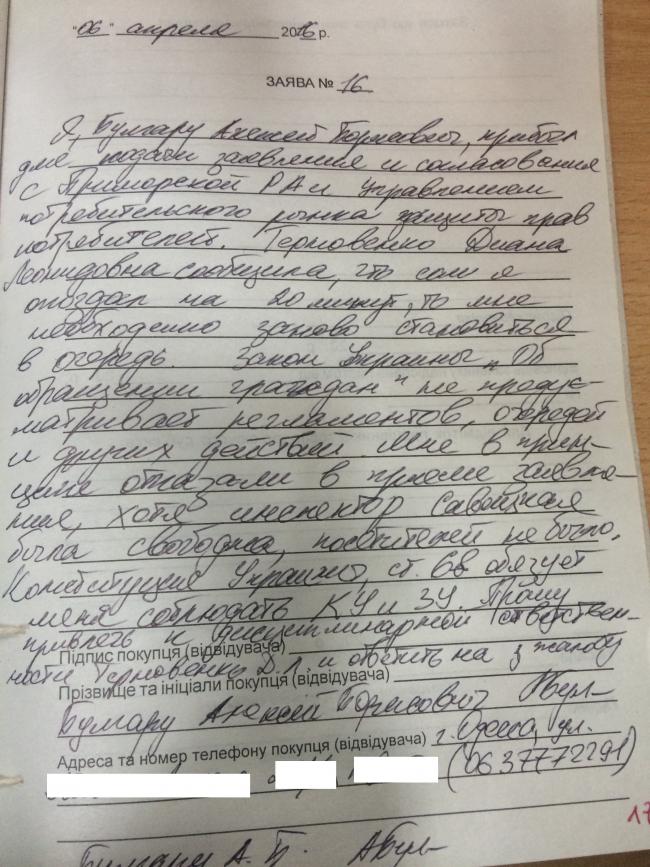 "06" апреля 2016 р.
ЗАЯВА № 16
Я, Булгару Алексей Борисович, прибыл
для подачи заявления и согласования
с Приморской РА и управлением
потребительского рынка защиты прав
потребителей. Терновенко Диана
Леонидовна сообщила, что если я
опоздал на 20 минут, то мне
необходимо заново становиться
в очередь. Закон Украины "Об
обращении граждан" не предус-
матривает регламентов, очередей
и других действий. Мне в прин-
ципе отказали в приеме заявле-
ния, хотя инспектор Савицкая
была свободна, посетителей не было.
Конституция Украины, ст. 68 обязует
меня соблюдать КУ и ЗУ. Прошу
привлечь к дисциплинарной ответствен-
Підпис покупця (відвідувача)
ности Терновенко Д.Л. и ответить на жалобу
Прізвище та ініціали покупця (відвідувача)
Булгару Алексей Борисович
Адреса та номер телефону покупця (відвідувача) г. Одесса, ул.
(0637772291)
17
Булгару А. Б.